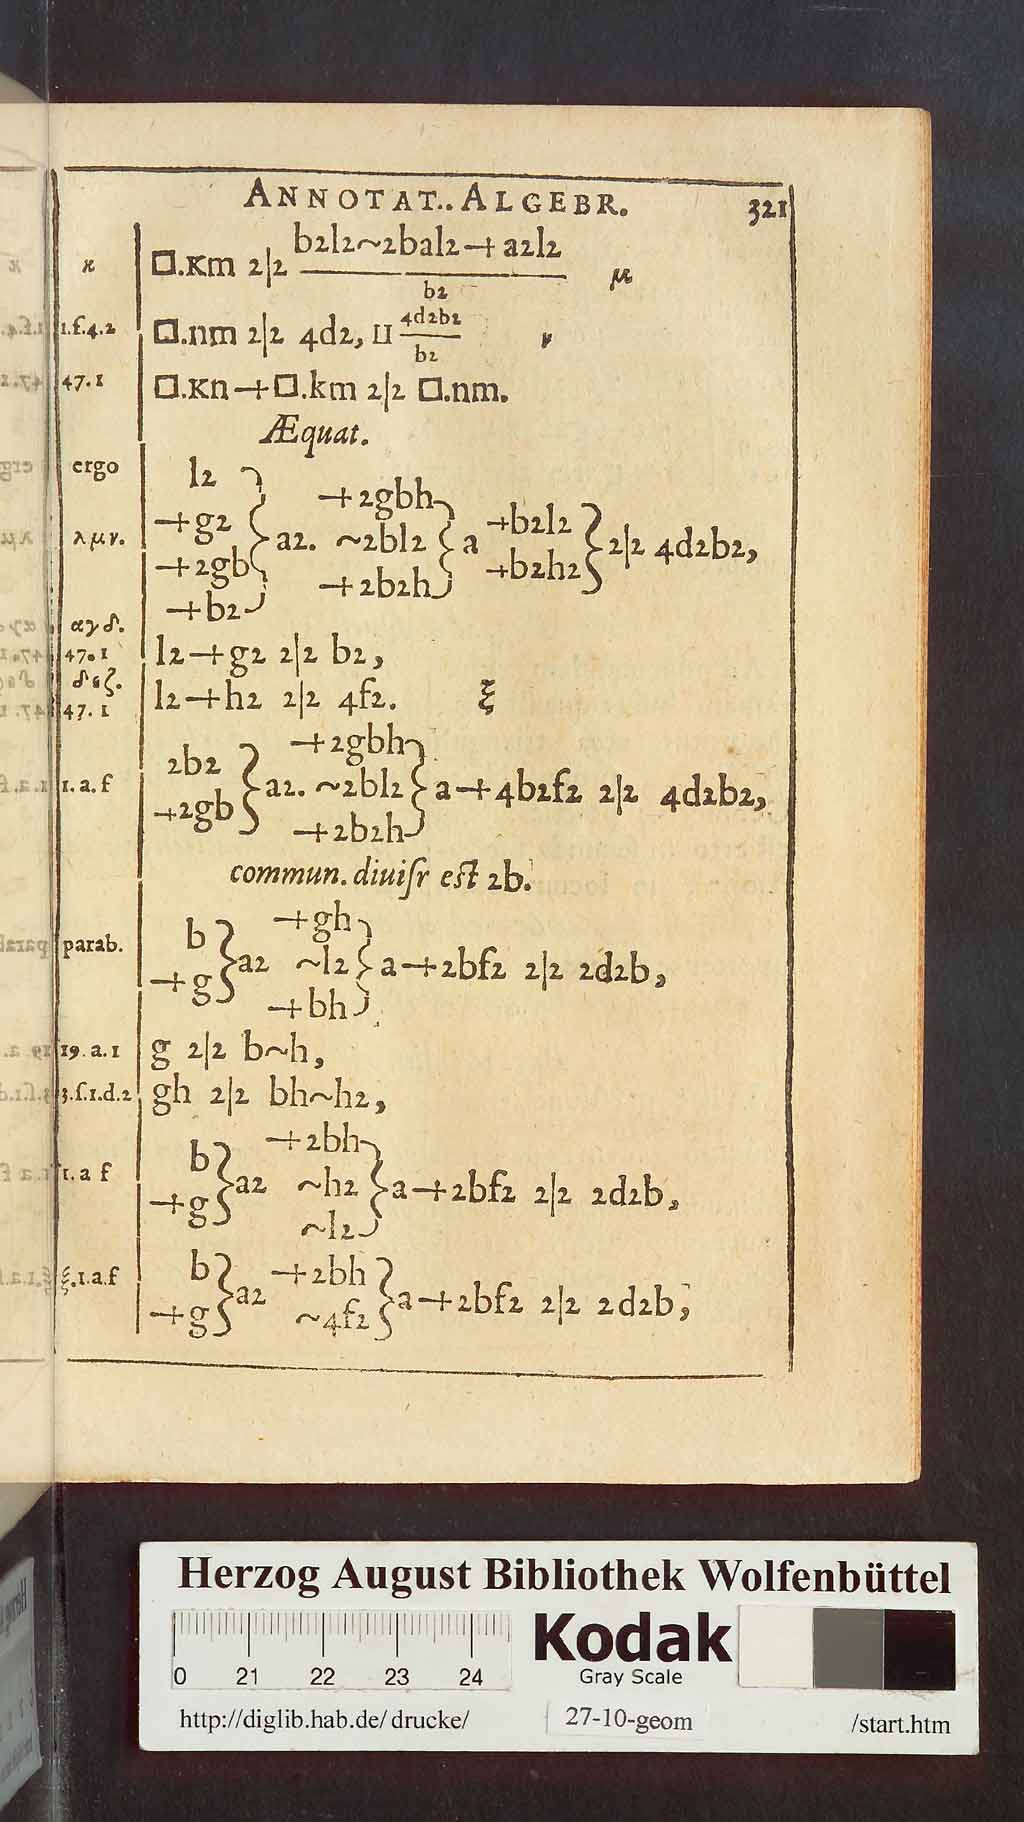 ANNOTAT.. ALGEBR. 321
κ □.κm 2|2 b2l2~2bal2+a2l2 μ
b2
1.f.4.2 □.nm 2|2 4d2, ⊔ 4d2b2 ν
b2
47.1 □.κn+□.km 2|2 □.nm.
Æquat.
ergo l2
+2gbh
+g2 +b2l2
λμν. a2. ~2bl2 a 2|2 4d2b2,
+2gb +b2h2
+2b2h
+b2
αγδ.
47.1 l2+g2 2|2 b2,
δεζ.
47.1 l2+h2 2|2 4f2. ξ
+2gbh
2b2
1.a.f a2. ~2bl2 a+4b2f2 2|2 4d2b2,
+2gb
+2b2h
commun. diuiſr eſt 2b.
+gh
b
parab. a2 ~l2 a+2bf2 2|2 2d2b,
+g
+bh
19.a.1 g 2|2 b~h,
3.ſ.1.d.2 gh 2|2 bh~h2,
+2bh
b
1.a f a2 ~h2 a+2bf2 2|2 2d2b,
+g
~l2
b +2bh
ξ.1.a.f a2 a+2bf2 2|2 2d2b,
+g ~4f2
Herzog August Bibliothek Wolfenbüttel
Kodak
Gray Scale
0 21 22 23 24
http://diglib.hab.de/drucke/ 27-10-geom /start.htm